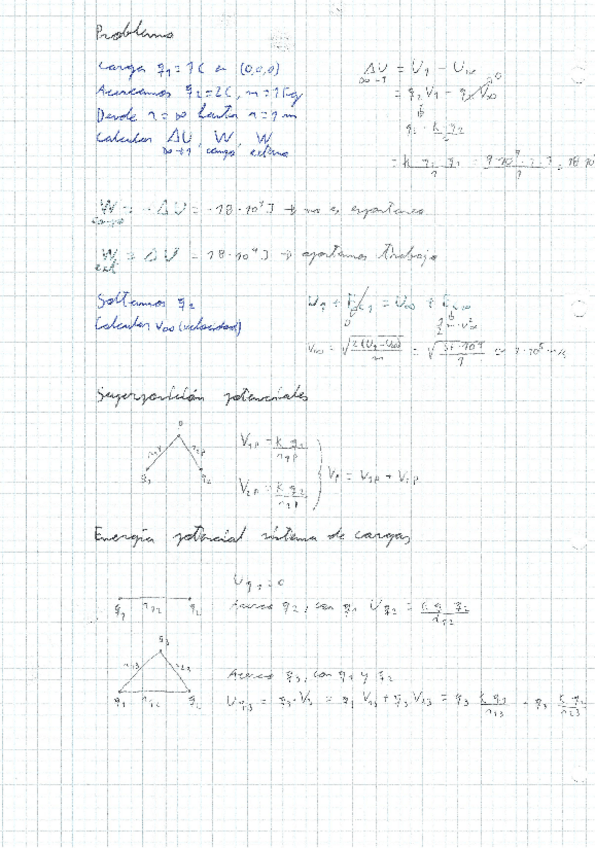 Problema
Carga q₁ = 1C en (0,0,0)
Acercamos q₂ = 2C, m = 1Kg
Desde r = ∞ hasta r = 1 m
Calcular ΔU, W, W
∞→1 campo externo
ΔU = U₁ - U∞
∞→1
= q₂V₁ - q₂V∞ 0
q₂ · k · q₂
= k q₂ q₁ / r = 9·10⁹·2·1 / 1 = 18·10⁹
W = -ΔU = -18·10⁹ J → no es espontáneo
campo
W = ΔU = 18·10⁹ J → aportamos trabajo
ext
Soltamos q₂
Calcular v∞ (velocidad)
U₁ + Ec₁ = U∞ + Ec∞
0 ½ m·v²
v∞ = √(2(U₁ - U∞) / m) = √(36·10⁹ / 1) = 2·10⁵ m/s
Superposición potenciales
q₁ r₁p r₂p q₂
V₁p = k q₁ / r₁p
V₂p = k q₂ / r₂p
Vp = V₁p + V₂p
Energía potencial sistema de cargas
Uq₁ = 0
q₁ r₁₂ q₂
Acerco q₂, con q₁ Uq₂ = k q₁ q₂ / r₁₂
q₃
r₁₃ r₂₃
q₁ r₁₂ q₂
Acerco q₃, con q₁ y q₂
Uq₃ = q₃·V₃ = q₃ V₁₃ + q₃ V₂₃ = q₃ k q₁ / r₁₃ + q₃ k q₂ / r₂₃